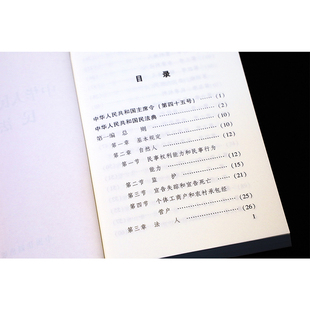 目 录
中华人民共和国主席令（第四十五号） (1)
中华人民共和国民法典 (2)
第一编 总 则 (10)
第一章 基本规定 (10)
第二章 自然人 (12)
第一节 民事权利能力和民事行为
能力 (12)
第二节 监 护 (15)
第三节 宣告失踪和宣告死亡 (21)
第四节 个体工商户和农村承包经
营户 (25)
第三章 法 人 (26)
1